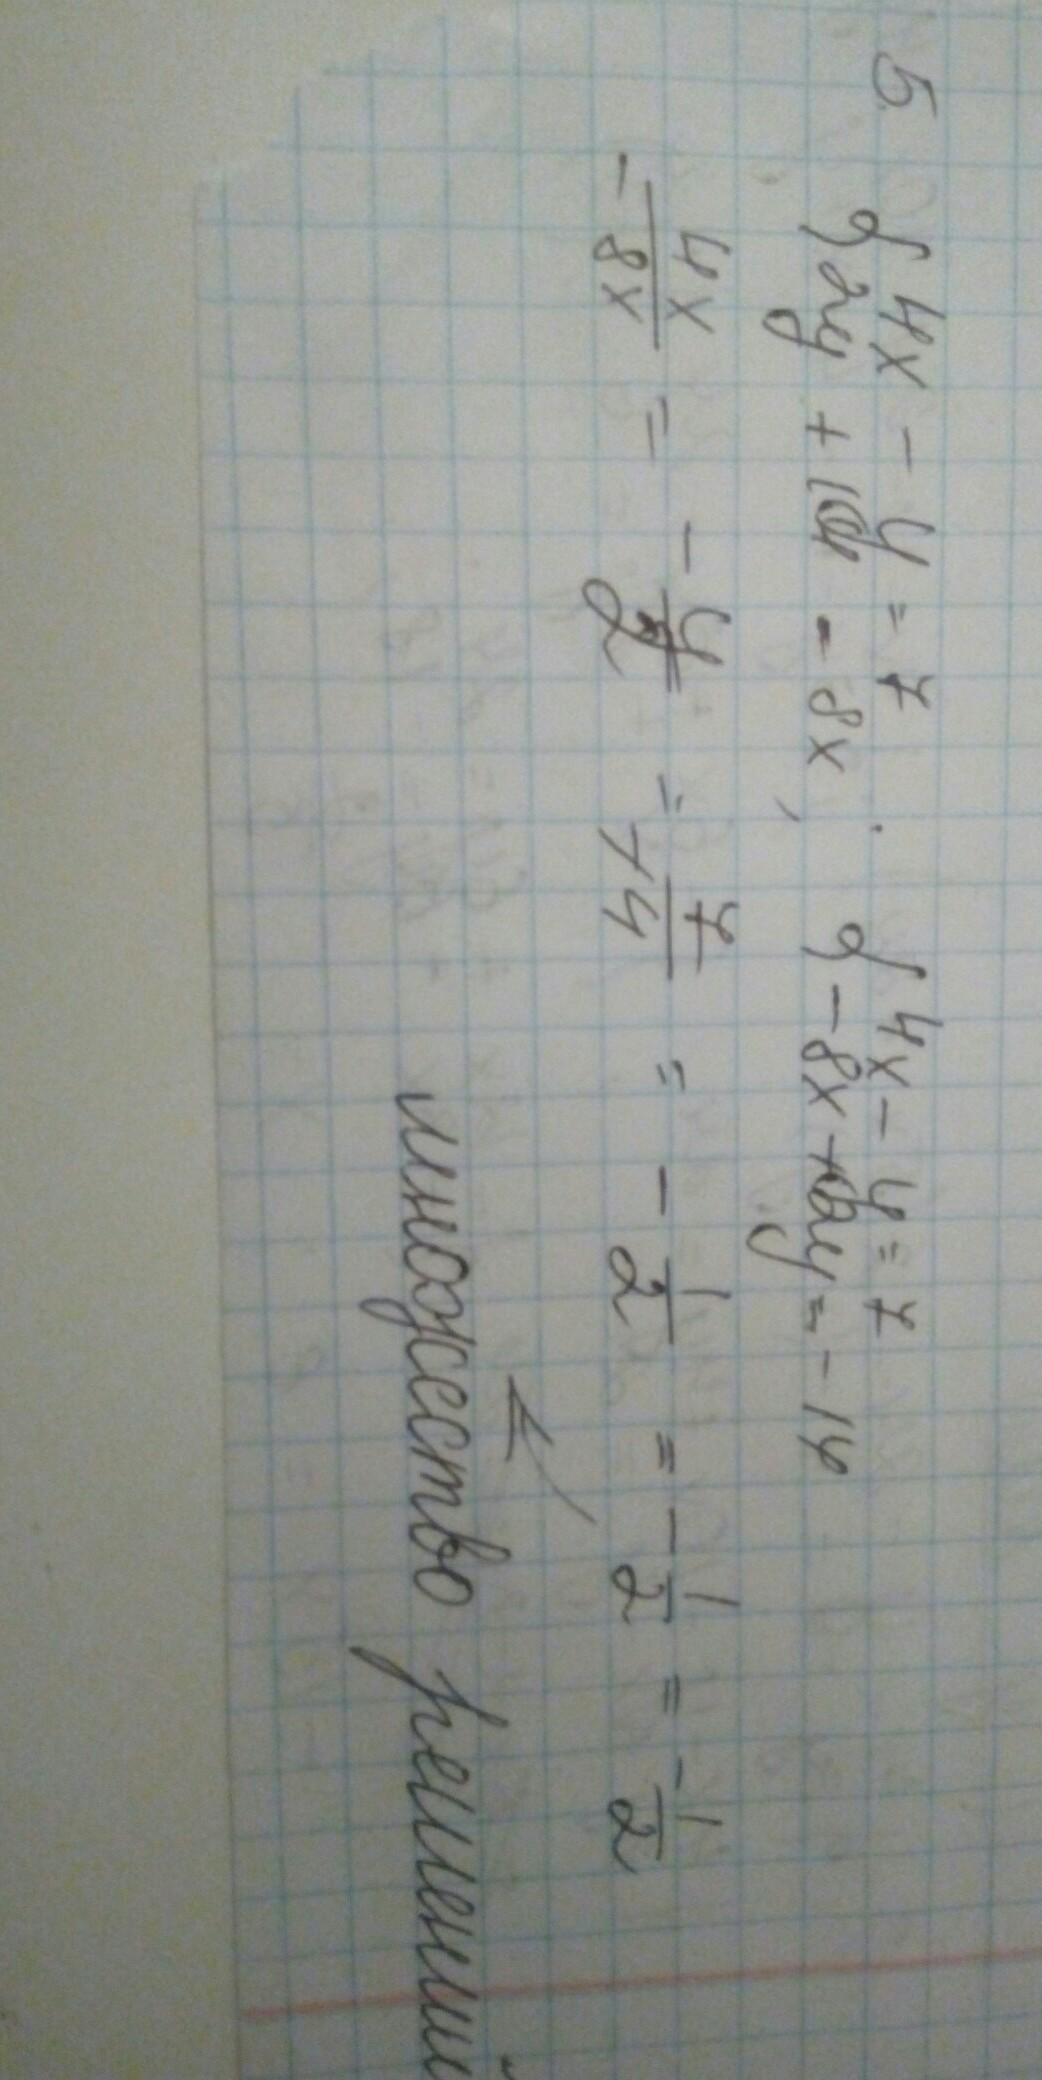 5
{ 4x - y = 7 { 4x - y = 7
2y + 14 = 8x, -8x + 2y = -14
4x/-8x = -y/2 = 7/-14 = -1/2 = -1/2 = -1/2
множество решений